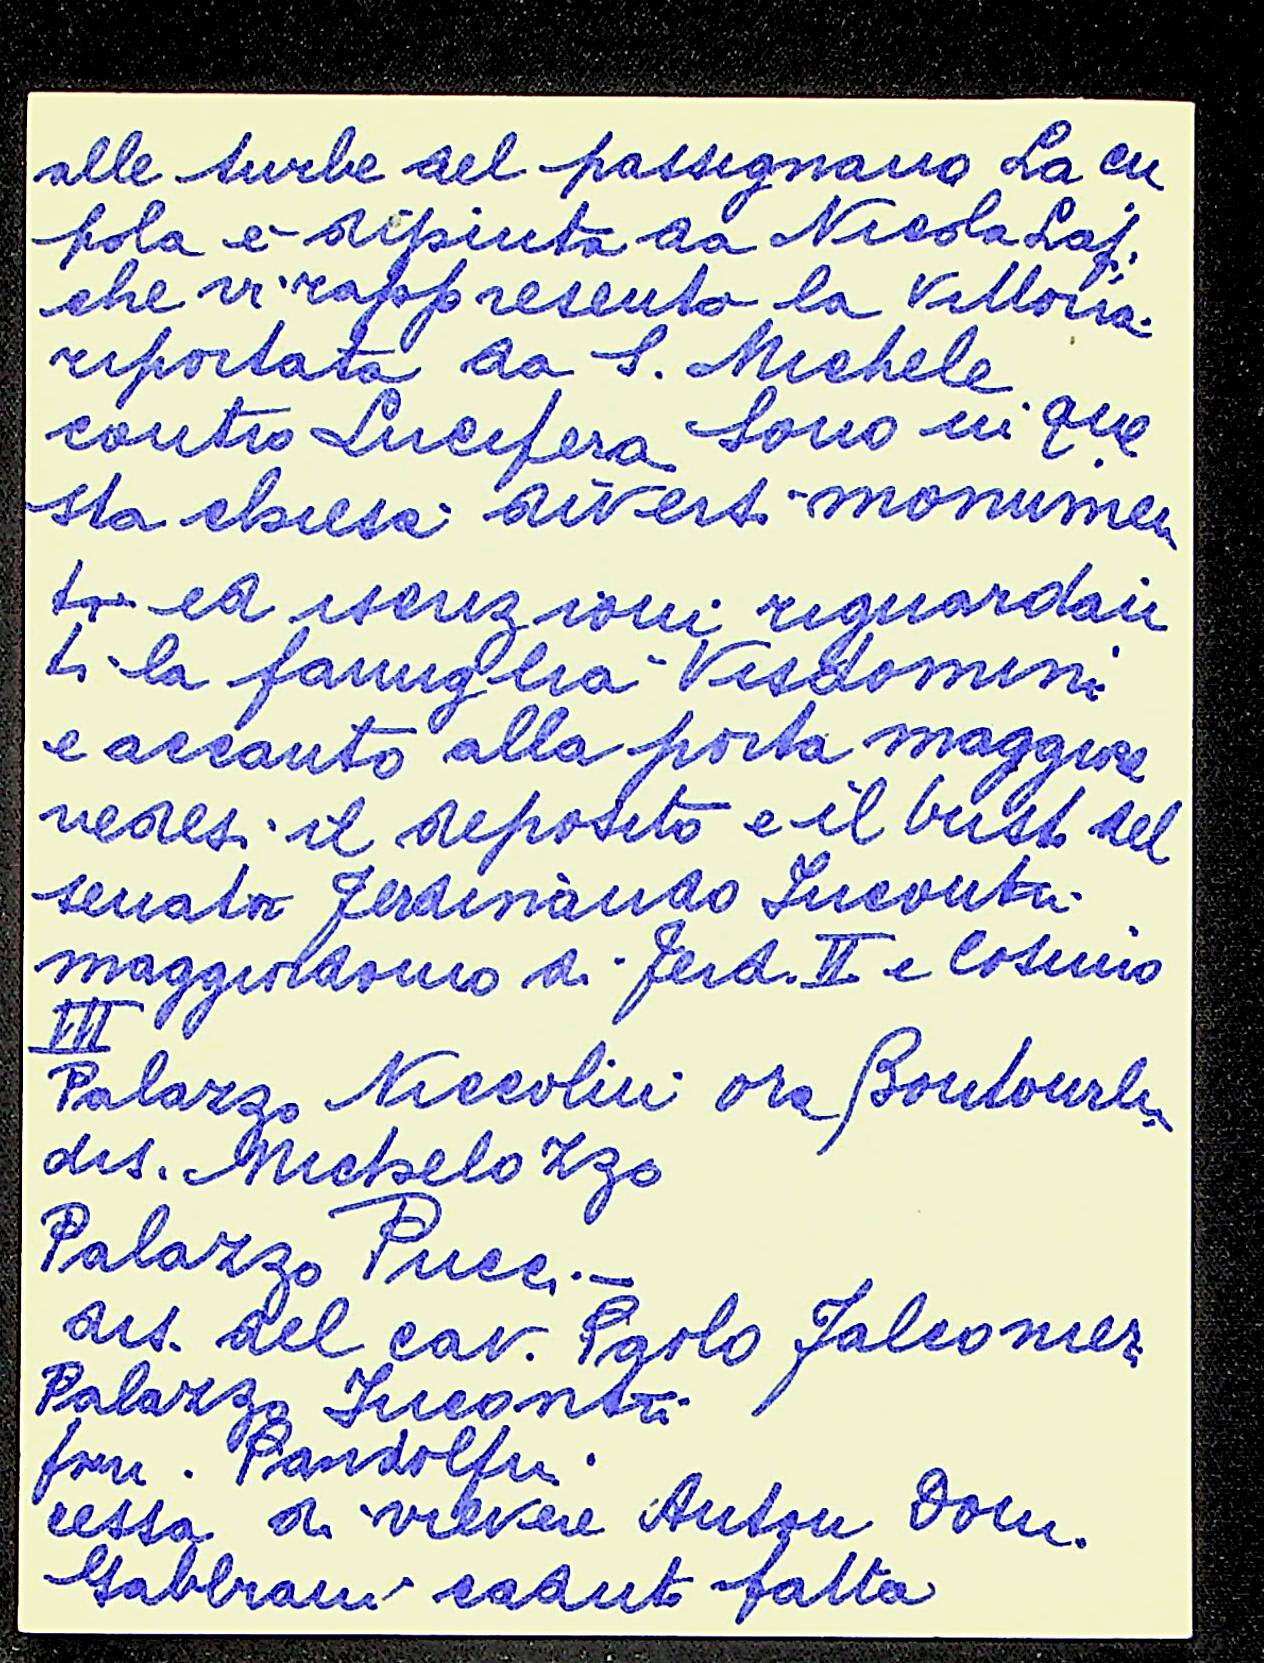 alle turbe del passignano La cu
pola è dipinta da Nicola Lapi
che vi rappresentò la Vittoria
riportata da S. Michele
contro Lucifero Sono in que
sta chiesa diversi monumen
ti ed iscrizioni riguardan
ti la famiglia Visdomini
e accanto alla porta maggiore
vedesi il deposito e il busto del
senator Ferdinando Incontri
maggiordomo di Ferd. II e Cosimo
III
Palazzo Niccolini ora Boutourlin
dis. Michelozzo
Palazzo Pucci –
dis. del cav. Paolo Falconieri
Palazzo Incontri
fam. Pandolfini
cessa di vivere Anton Dom.
Gabbiani caduto